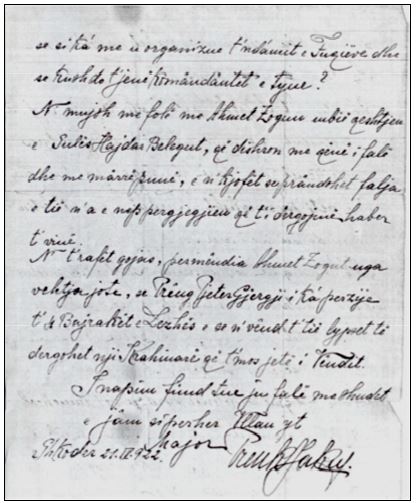 se si ká me u organizue t'ndámit e Fuqiëve dhe
se kushdo t'jenë komandántet e tyne?
N'mujsh me folë me Ahmet Zogun mbi qeshtjen
e Sulës Hajdar Belegut, që dishron me qënë i falë
dhe me márrë punë, e n'kjoftë se prándohet falja
e tië n'a e nep pergjegjien që t'i dergojmë haber
t'vinë.
N'trafët gojas, permendia Ahmet Zogut nga
vehtja jote, se Preng Pjeter Gjergji i ká perzije
t'4 Bajrakët e Lezhës e se n'vend t'tië lypset të
dergohet nji Krahinarë që t'mos jetë i Vendit.
I napim fund tue ju falë me shndet
e jám si perher Vllau yt
Major
Shkoder 21.II.922.